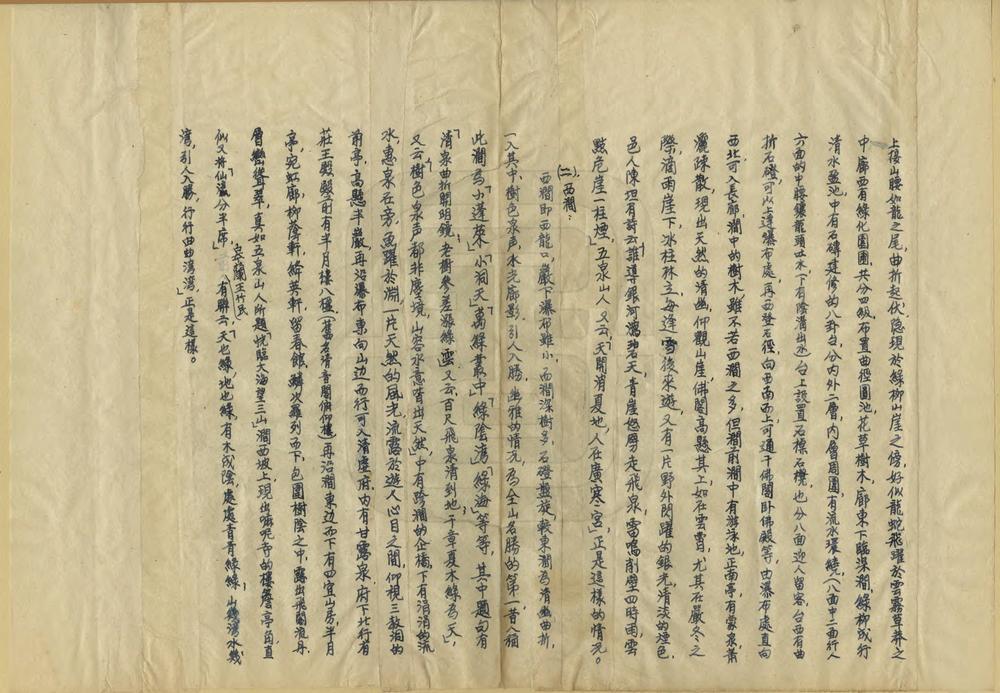 上接山腰如龍之尾,曲折起伏,隱現於綠柳山崖之傍,好似龍蛇飛躍於雲霧草莽之
中,廊西有綠化園圃,共分四級,布置曲徑圓池,花草樹木,廊東下臨深澗,綠柳成行
清水盤池,中有石磚建修的八卦台,分內外二層,內層周圍有流水環繞,(八面中二面行人
六面的中腰鑲龍頭吐水下有陰溝出水)台上設置石標石欄,也分八面迎人留客,台西有曲
折石磴,可以上達瀑布處,再西登石徑,向西南而上可通千佛閣臥佛殿等,由瀑布處直向
西北,可入長廊,澗中的樹木,雖不若西澗之多,但澗前澗中有游泳地,正南亭有蒙泉蕭
灑疎散,現出天然的清幽,仰觀山崖佛閣高懸其上,如在雲霄,尤其在嚴冬之
際,滴雨崖下,冰柱林立,每逢雪後來遊,又有一片野外閃躍的銀光,清淡的煙色,
邑人陳坦有詩云「誰導銀河瀉碧天,青崖怒劈走飛泉,雷鳴削壁四時雨,雲
點危崖一柱煙」五泉山人又云「天開消夏地,人在廣寒宮」正是這樣的情況。
(二)西澗:
西澗即西龍口,巖下瀑布雖小,而澗深樹多,石磴盤旋,較東澗為清幽曲折,
一入其中,樹色泉声,水光廊影,引人入勝,幽雅的情況,為全山名勝的第一,昔人稱
此澗為「小蓬萊」「小洞天」「萬綠叢中」「綠陰灣」「綠海」等等,其中題句有
「清泉曲折開明鏡,老樹參差漲綠雲」又云「百尺飛泉清到地,千章夏木綠為天」,
又云「樹色泉声都非塵境,山容水意皆出天然」中有跨澗的企橋,下有涓涓的流
水,惠泉在旁,魚躍於淵,一片天然的風光,流露於遊人心目之間,仰視三教洞的
前亭,高懸半巖,再沿瀑布東向山边而行可入清虛府,內有甘露泉,府下北行有
莊王殿,殿對有半月樓八楹,(舊名清音閣俯仰樓)再沿澗東边而下有四宜山房,半月
亭,宛虹廊,柳蔭軒,綺英軒,留春館,鱗次羅列而下,包圍樹陰之中,露出飛閣流丹,
層巒聳翠,真如五泉山人所題「恍臨大海望三山」澗西坡上,現出嘛呢寺的樓簷亭角,直
似「又將仙瀛分半席」皋蘭王竹民有聯云「天也綠,地也綠,有木成陰,處處青青綠綠,山幾灣水幾
灣,引人入勝,行行曲曲灣灣」正是這樣。